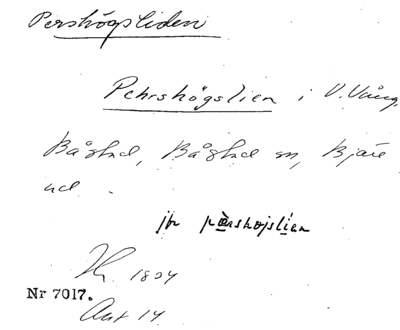 Pershögsliden
Pehrshögslien i V. Vång,
Båstad, Båstad sn, Bjäre
hd.
jfr pärshöjslien
1834
Nr 7017.
Akt 14